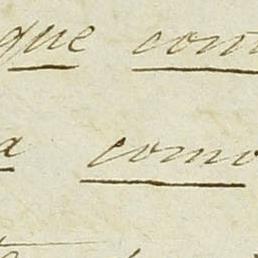 que com
a como